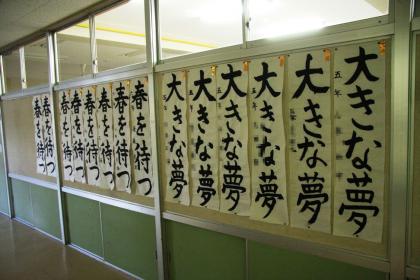 大きな夢
五年
大きな夢
大きな夢
五年
大きな夢
大きな夢
大きな夢
春を待つ
春を待つ
春を待つ
春を待つ
春を待つ
春を待つ
春を待つ
春を待つ